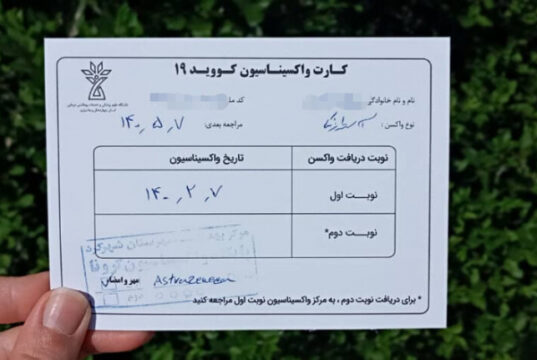 کارت واکسیناسیون کووید ۱۹
نام و نام خانوادگی
کد ملی
نوع واکسن: آسترازنکا
مراجعه بعدی: ۱۴۰۰٫۵٫۷
نوبت دریافت واکسن تاریخ واکسیناسیون
نوبت اول ۱۴۰۰٫۲٫۷
نوبت دوم*
شهرستان شهرکرد
واکسیناسیون کرونا
مهر و امضاء AstraZeneca
* برای دریافت نوبت دوم ، به مرکز واکسیناسیون نوبت اول مراجعه کنید